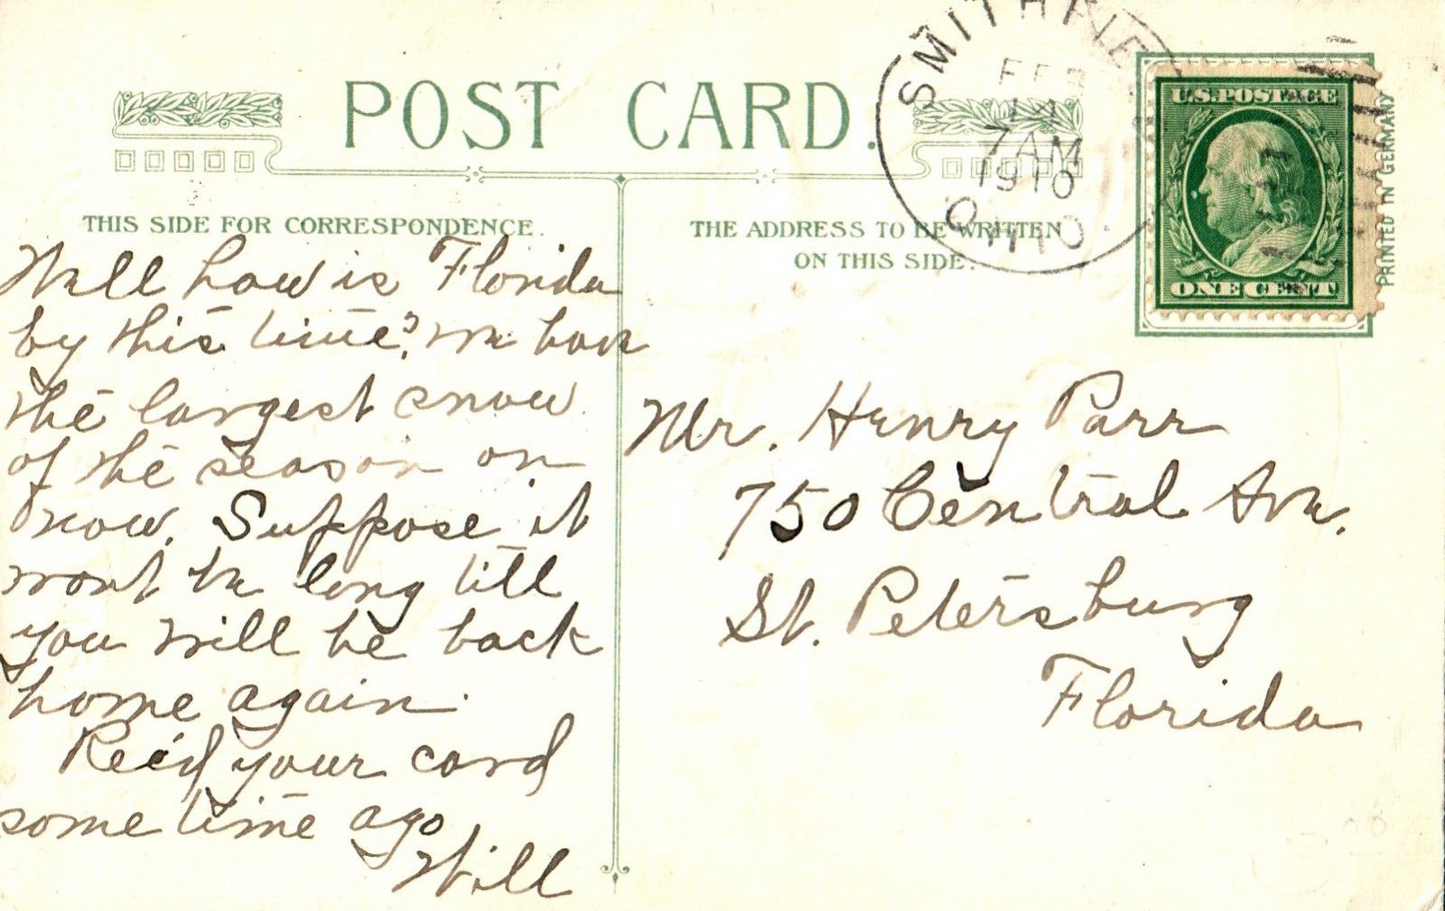 POST CARD.
THIS SIDE FOR CORRESPONDENCE.
Well how is Florida
by this time? We have
the largest snow
of the season on
now. Suppose it
wont be long till
you will be back
home again.
Rec'd your card
some time ago
Will
THE ADDRESS TO BE WRITTEN
ON THIS SIDE.
FEB
14
7 AM
1910
OHIO.
U.S. POSTAGE
ONE CENT
PRINTED IN GERMANY
Mr. Henry Parr
750 Central Ave.
St. Petersburg
Florida